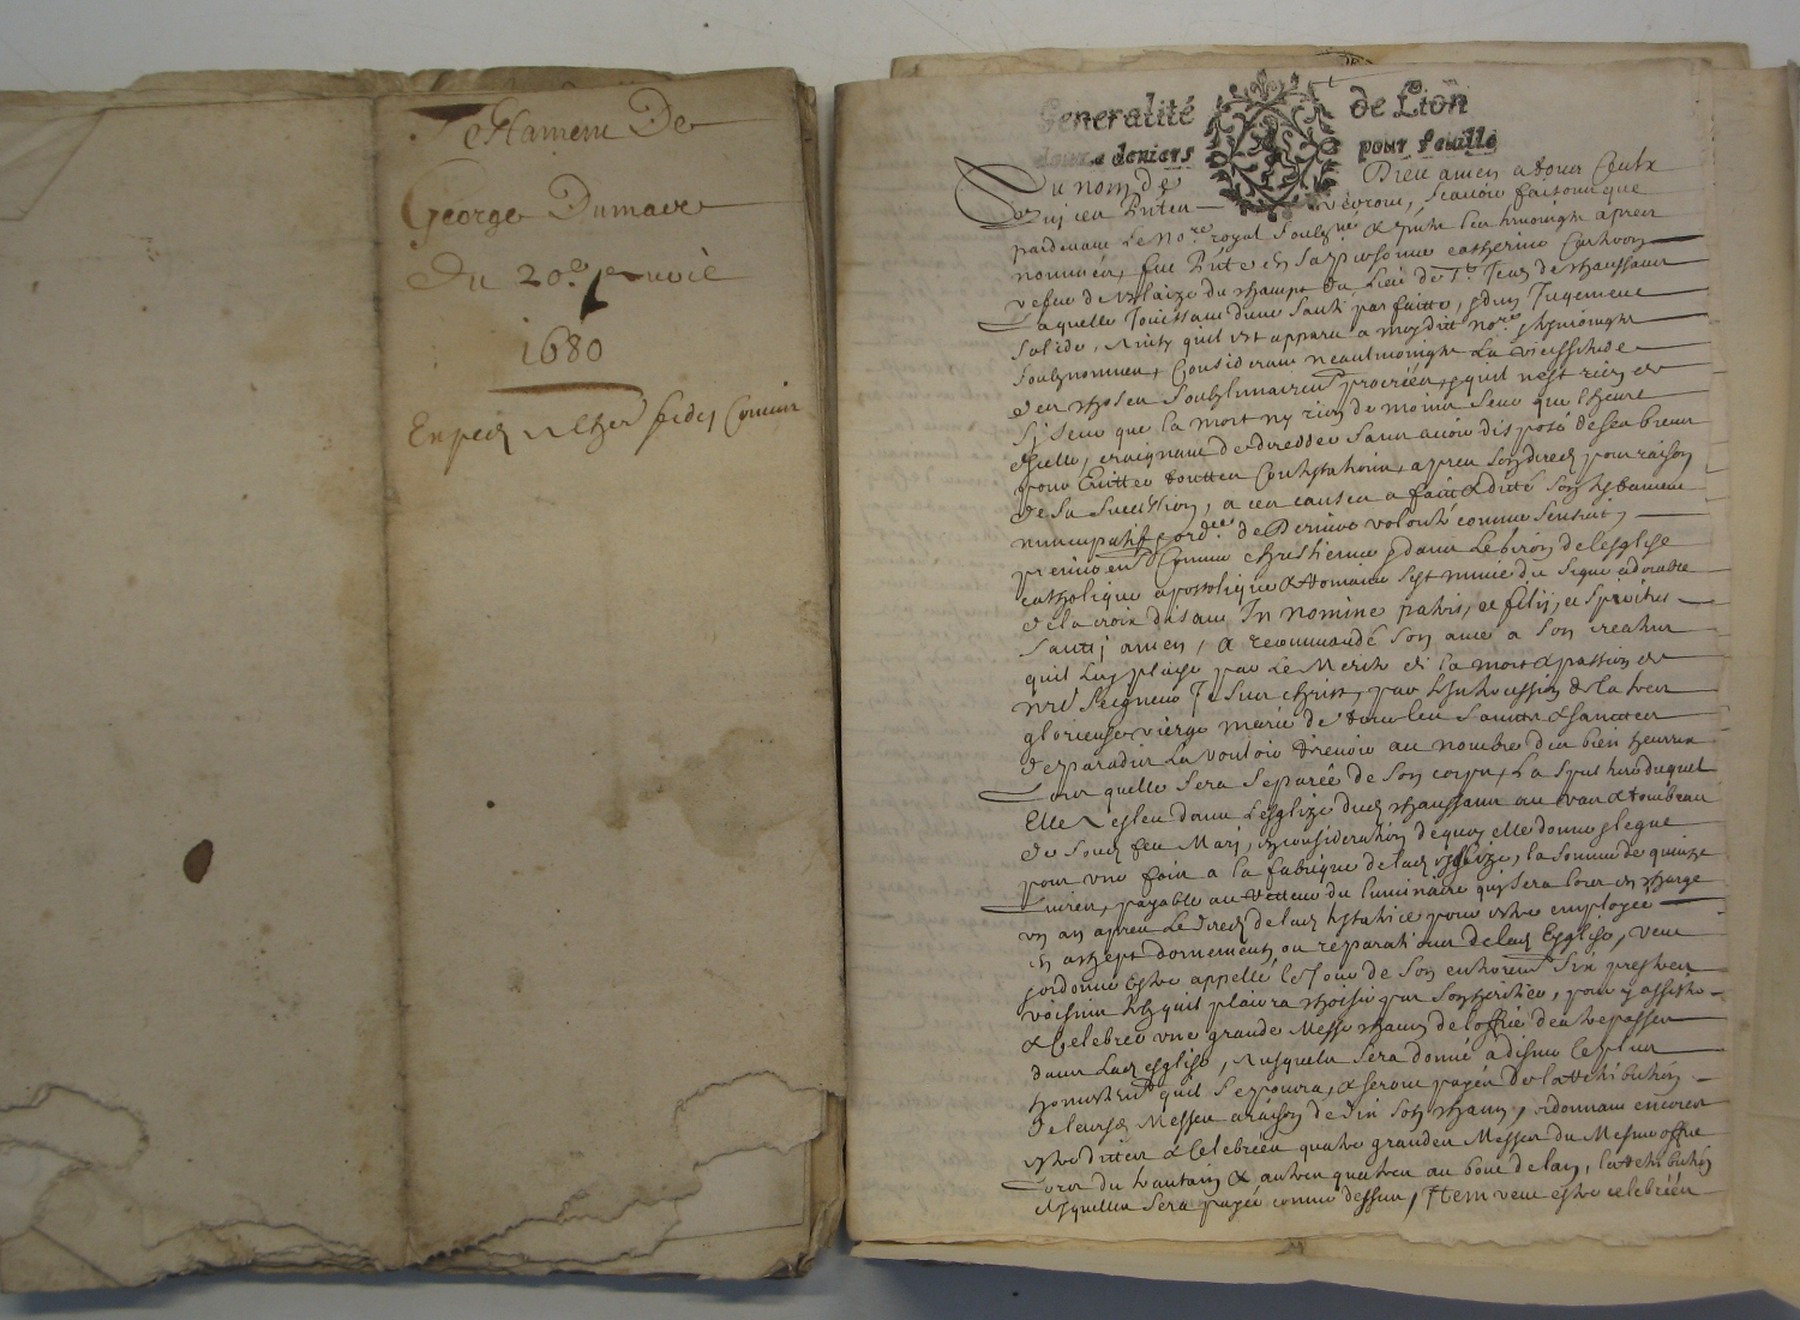 Testament De
George Dumas
Du 20e janvie
1680
Exped
Generalité de Lion
deniers pour feuille
Du nom de Dieu amen a tous ceulx
qui ces pntes verront, scavoir faisons que
pardevant le Nore royal soubzné & pnts les tesmoingtz apres
nommés, fut pnte en sa personne catherine
vefve de Blaize du champt du lieu de St Jean de chaussan
Laquelle Jouissant d'une santé parfaitte, & dun Jugement
solide, ainsy quil est apparu a moydit nore & tesmoingtz
soubznommes, Considerant neaulmoingtz la vicissitude
des choses soubzlunaires procréés, & quil nest rien de
sy seur que la mort ny rien de moins seur que l'heure
dicelle, craignant de decedder sans avoir disposé de ses biens
pour Evitter touttes Contestations, apres son deced pour raison
de sa succession, a ces causes a faict & dicté son testament
nuncupatif & ordce de Derniere volonté comme sensuit,
premierent Comme chrestienne & dans le giron de lesglise
catholique apostolique & Romaine sest munie du signe adorable
de la croix disant In nomine patris, et filij, et spiritus
santi amen, a recommandé son ame a son createur
quil luy plaise par le Merite de la mort & passion de
nre Seigneur Jesus christ, par Intercession de la tres
glorieuse vierge marie de tous les saintz & sainctes
de paradis la vouloir recevoir au nombre des bien heureux
Lors quelle sera separée de son corps, la sepulture duquel
Elle a esleu dans lesglize dud chaussan au vas & tombeau
de soud feu Mary, en consideration dequoy elle donne & legue
pour une fois a la fabrique de lad esglize, la somme de quinze
Livres, payable au Recteur du luminaire qui sera lors en charge
un an apres le deced de lad testatrice pour estre employée
en achept dornements ou reparations de lad Esglise, veut
& ordonne Estre appellé le Jour de son enterremt six prestres
voisins telz quil plaira choisir par son heritier, pour y assister
& Celebrer une grande Messe chacun de loffice des trepassés
dans lad esglise, ausquelz sera donné a disner le plus
honnestemt quil se pourra, & seront payés de la retribution
de leursd Messes a raison de dix solz chacun, ordonnant encores
estre dittes & Celebrées quatre grandes Messes du Mesme office
Lors du trantain & autres quatres au bout de lan, la retribution
desquelles sera payée comme dessus, Item veut estre celebrées